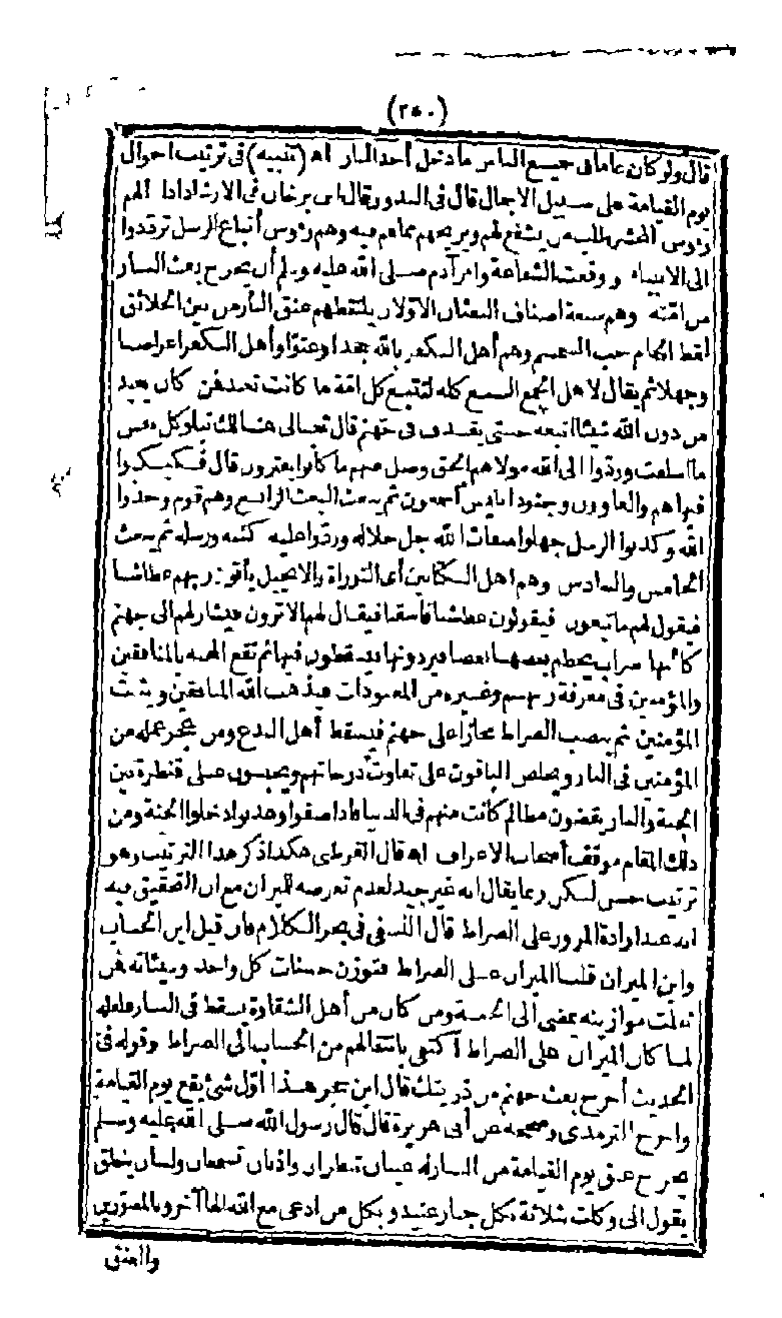 (٢٥٠)
قال ولو كان عاما فى جميع الناس ما دخل أحد النار اه (تنبيه) فى ترتيب احوال
يوم القيامة على سبيل الاجمال قال فى البدور قال ابن برجان فى الارشاد اذا الهم
رؤس المحشر لطلب من يشفع لهم ويريحهم مما هم فيه وهم رؤس أتباع الرسل ترددوا
الى الانبياء ووقعت الشفاعة وامر آدم صلى الله عليه وسلم أن يخرج بعث النار
من امّته وهم سبعة اصناف البعثان الاوّلان يلتقطهم عنق النار من بين الخلائق
لقط الحمام حب السمسم وهم أهل الكفر بالله جحدا وعتوّا وأهل الكفر اعراضا
وجهلا ثم يقال لاهل الجمع كله لتتبع كل امّة ما كانت تعبد فمن كان يعبد
من دون الله شيئا اتبعه حتى يقذف فى جهنم قال تعالى هنالك تبلو كل نفس
ما اسلفت وردّوا الى الله مولاهم الحق وضل عنهم ما كانوا يفترون قال فكبكبوا
فيها هم والغاوون وجنود ابليس أجمعون ثم يبعث البعث الرابع وهم قوم وحدوا
الله وكذبوا الرسل جهلوا صفات الله جل جلاله وردّوا عليه كتبه ورسله ثم يبعث
الخامس والسادس وهم اهل الكتابين أى التوراة والانجيل يأتون ربهم عطاشا
فيقول لهم ما تبغون فيقولون عطشنا فاسقنا فيقال لهم الا ترون فيشار لهم الى جهنم
كأنها سراب يحطم بعضها بعضا فيردونها فيسقطون فيها ثم تقع المحنة بالمنافقين
والمؤمنين فى معرفة ربهم وغيره من المعبودات فيذهب الله المنافقين ويثبت
المؤمنين ثم ينصب الصراط مجازا على جهنم فيسقط أهل البدع ومن عمله من
المؤمنين فى النار ويخلص الباقون على تفاوت درجاتهم ويحبسون على قنطرة بين
الجنة والنار يقضون مظالم كانت منهم فى الدنيا فاذا صفوا وهذبوا دخلوا الجنة ومن
ذلك المقام موقف أصحاب الاعراف اه قال القرطبى هكذا ذكر هذا الترتيب وهو
ترتيب حسن لكن ربما يقال انه غير جيد لعدم تعرضه للميزان مع ان التحقيق فيه
انه عند ارادة المرور على الصراط قال النسفى فى بحر الكلام فان قيل اين الحساب
واين الميزان قلنا الميزان على الصراط فتوزن حسنات كل واحد وسيئاته فمن
ثقلت موازينه يمضى الى الجنة ومن كان من أهل الشقاوة يسقط فى النار فلعله
لما كان الميزان على الصراط اكتفى بانتقالهم من الحساب الى الصراط وقوله فى
الحديث أخرج بعث جهنم من ذريتك قال ابن حجر هذا اوّل شئ يقع يوم القيامة
واخرج الترمذى وصححه عن أبى هريرة قال قال رسول الله صلى الله عليه وسلم
يخرج عنق يوم القيامة من النار له عينان تنظران واذنان تسمعان ولسان ينطق
يقول انى وكلت بثلاثة بكل جبار عنيد وبكل من ادعى مع الله الها آخر وبالمصوّرين
والعنق